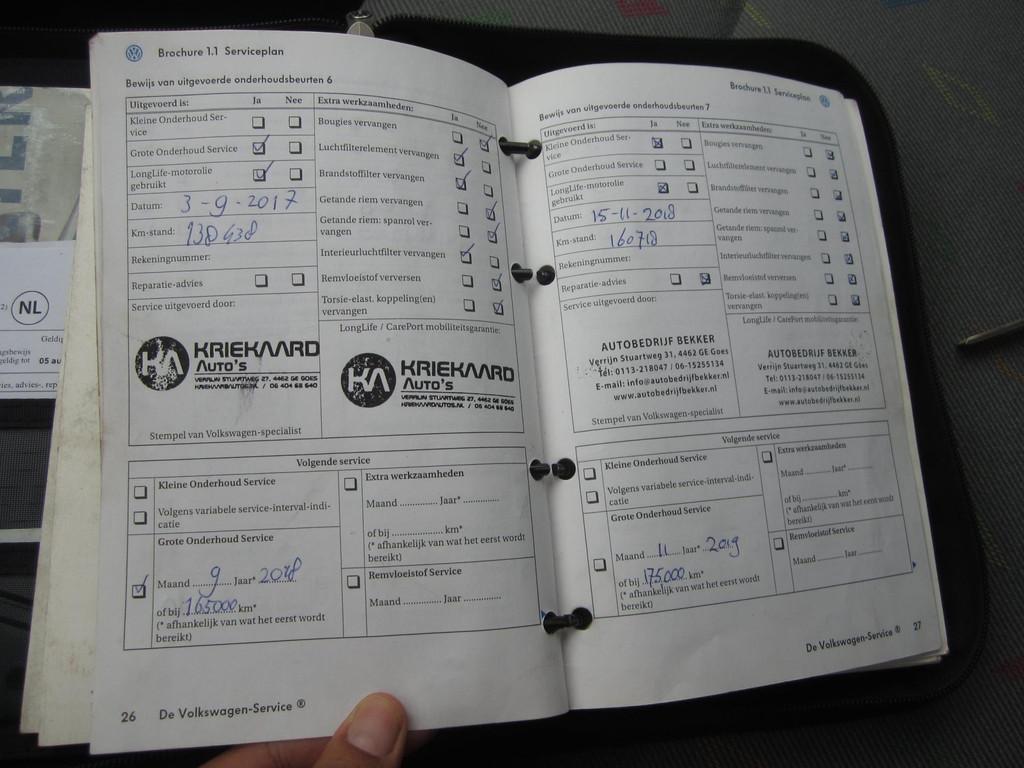 Brochure 1.1 Serviceplan
Bewijs van uitgevoerde onderhoudsbeurten 6
Uitgevoerd is: Ja Nee
Kleine Onderhoud Ser-
vice
Grote Onderhoud Service
LongLife-motorolie
gebruikt
Datum: 3-9-2017
Km-stand: 138438
Rekeningnummer:
Reparatie-advies
Service uitgevoerd door:
KRIEKAARD
AUTO'S
VERRIJN STUARTWEG 27, 4462 GE GOES
KRIEKAARDAUTOS.NL / 06 404 68 640
Stempel van Volkswagen-specialist
Extra werkzaamheden: Ja Nee
Bougies vervangen
Luchtfilterelement vervangen
Brandstoffilter vervangen
Getande riem vervangen
Getande riem: spanrol ver-
vangen
Interieurluchtfilter vervangen
Remvloeistof verversen
Torsie-elast. koppeling(en)
vervangen
LongLife / CarePort mobiliteitsgarantie:
KA KRIEKAARD
AUTO'S
VERRIJN STUARTWEG 27, 4462 GE GOES
KRIEKAARDAUTOS.NL / 06 404 68 640
Volgende service
Kleine Onderhoud Service
Volgens variabele service-interval-indi-
catie
Grote Onderhoud Service
Maand 9 Jaar* 2018
of bij 165000 km*
(* afhankelijk van wat het eerst wordt
bereikt)
Extra werkzaamheden
Maand .............. Jaar* ..............
of bij .............. km*
(* afhankelijk van wat het eerst wordt
bereikt)
Remvloeistof Service
Maand .............. Jaar ..............
26 De Volkswagen-Service ®
Brochure 1.1 Serviceplan
Bewijs van uitgevoerde onderhoudsbeurten 7
Uitgevoerd is: Ja Nee
Kleine Onderhoud Ser-
vice
Grote Onderhoud Service
LongLife-motorolie
gebruikt
Datum: 15-11-2018
Km-stand: 160718
Rekeningnummer:
Reparatie-advies
Service uitgevoerd door:
AUTOBEDRIJF BEKKER
Verrijn Stuartweg 31, 4462 GE Goes
Tel: 0113-218047 / 06-15255134
E-mail: info@autobedrijfbekker.nl
www.autobedrijfbekker.nl
Stempel van Volkswagen-specialist
Extra werkzaamheden: Ja Nee
Bougies vervangen
Luchtfilterelement vervangen
Brandstoffilter vervangen
Getande riem vervangen
Getande riem: spanrol ver-
vangen
Interieurluchtfilter vervangen
Remvloeistof verversen
Torsie-elast. koppeling(en)
vervangen
LongLife / CarePort mobiliteitsgarantie:
AUTOBEDRIJF BEKKER
Verrijn Stuartweg 31, 4462 GE Goes
Tel: 0113-218047 / 06-15255134
E-mail: info@autobedrijfbekker.nl
www.autobedrijfbekker.nl
Volgende service
Kleine Onderhoud Service
Volgens variabele service-interval-indi-
catie
Grote Onderhoud Service
Maand 11 Jaar* 2019
of bij 175000 km*
(* afhankelijk van wat het eerst wordt
bereikt)
Extra werkzaamheden
Maand ........... Jaar* ...........
of bij ........... km*
(* afhankelijk van wat het eerst wordt
bereikt)
Remvloeistof Service
Maand ........... Jaar ...........
De Volkswagen-Service ® 27
NL